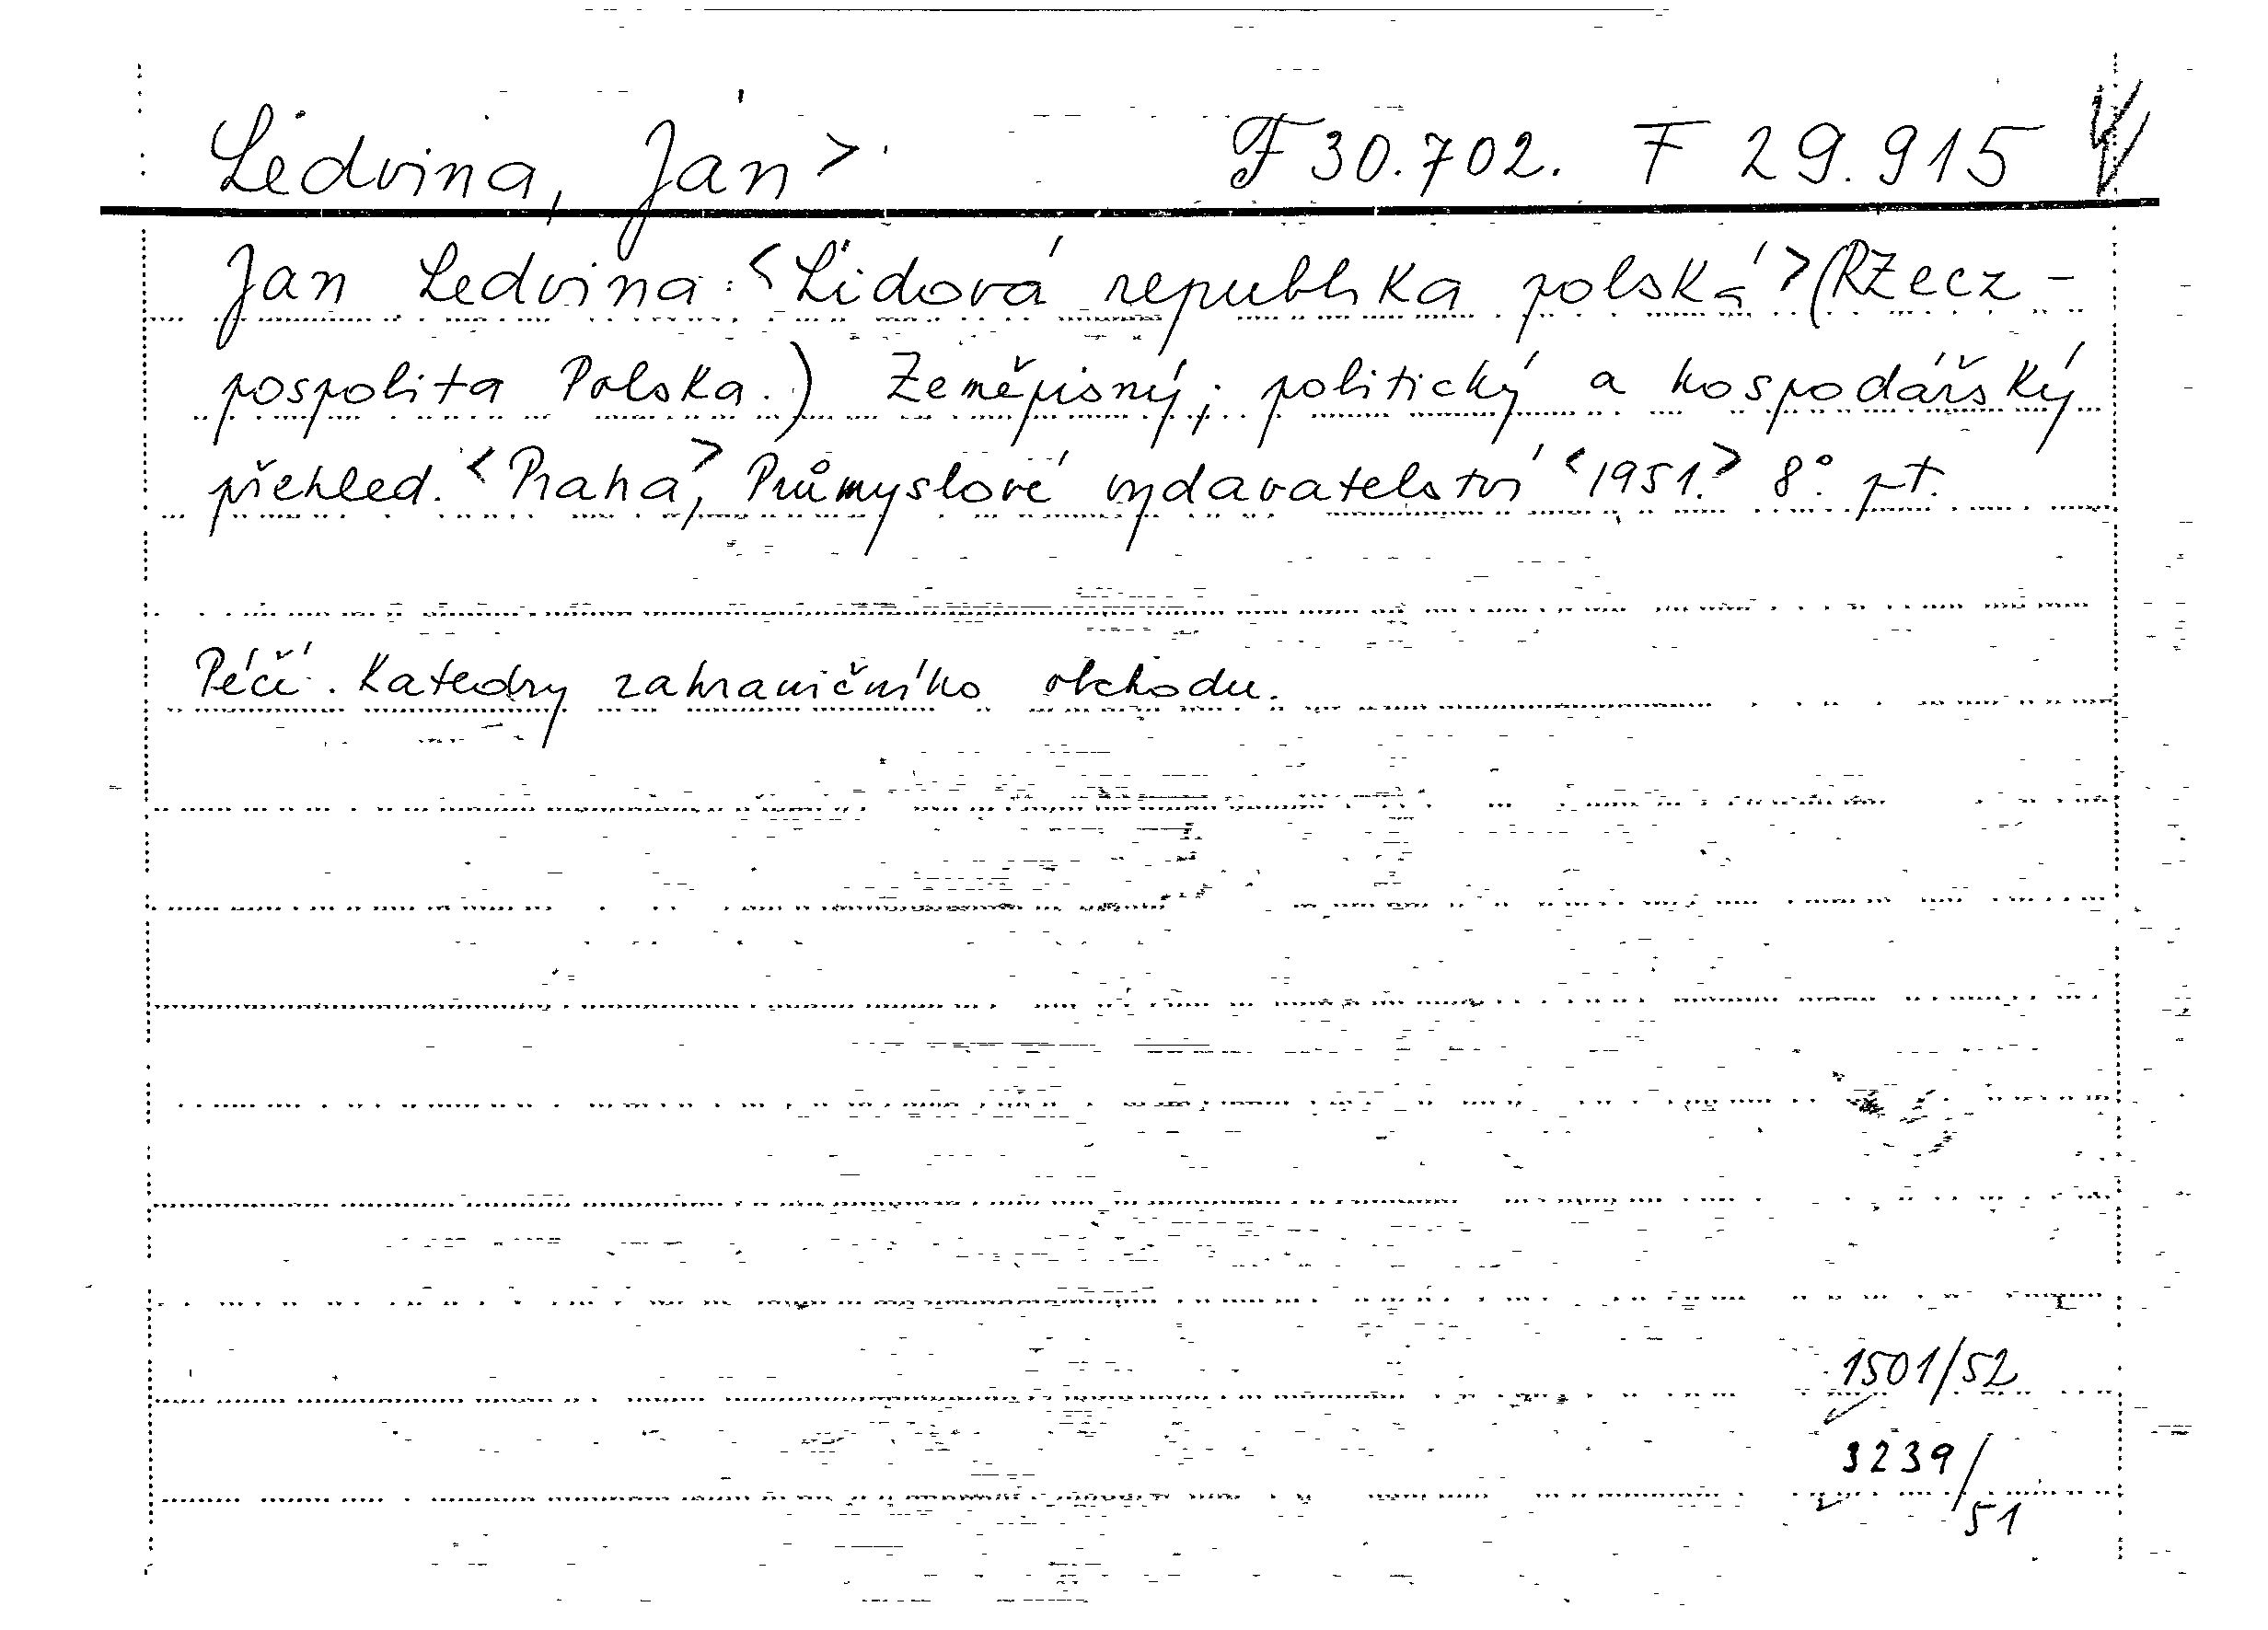 Ledvina, Jan > F 30.702. F 29.915
Jan Ledvina: <Lidová republika polská> (Rzecz-
pospolita Polska.) Zeměpisný, politický a hospodářský
přehled. <Praha>, Průmyslové vydavatelství <1951.> 8°. pt.
Péčí. Katedry zahraničního obchodu.
1501/52
3239/
51